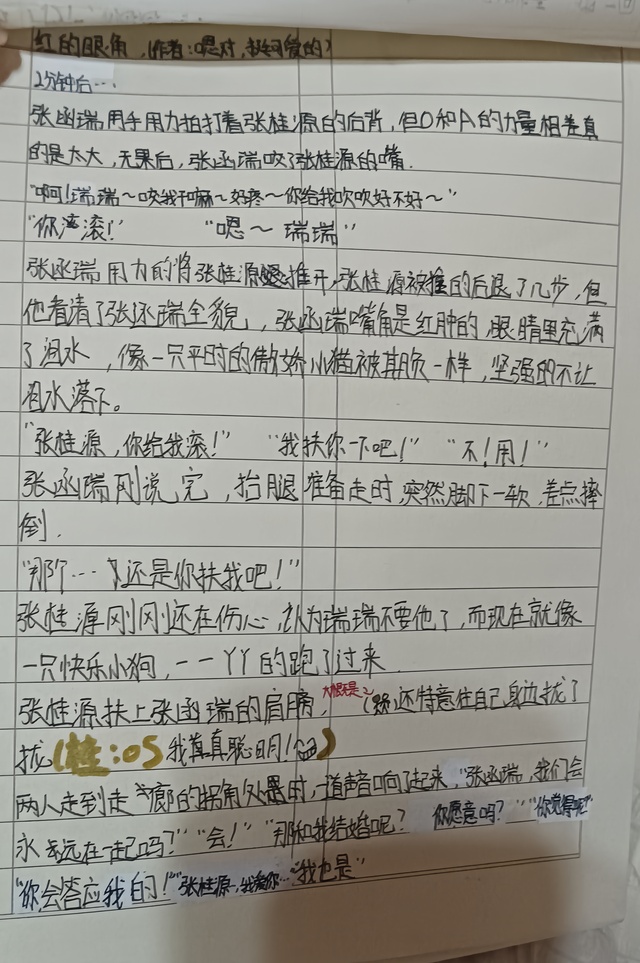 红的眼角，(作者：嗯对，挺可爱的)
2分钟后…
张函瑞用手用力拍打着张桂源的后背，但O和A的力量相差真
的是太大，无果后，张函瑞咬了张桂源的嘴.
"啊！瑞瑞～咬我干嘛～好疼～你给我吹吹好不好～"
"你滚！" "嗯～瑞瑞"
张函瑞用力的将张桂源推开，张桂源被推的后退了几步，但
他看清了张函瑞全貌，张函瑞嘴角是红肿的，眼睛里充满
了泪水，像一只平时的傲娇小猫被欺负一样，坚强的不让
泪水落下。
"张桂源，你给我滚！" "我扶你一下吧！" "不！用！"
张函瑞刚说完，抬腿准备走时，突然脚下一软，差点摔
倒.
"那个…还是你扶我吧！"
张桂源刚刚还在伤心，认为瑞瑞不要他了，而现在就像
一只快乐小狗，一一丫丫的跑了过来
张桂源扶上张函瑞的肩膀，还特意往自己身边拢了
拢(桂：OS我真真聪明！)
两人走到走廊的拐角处时，一道声音响了起来，"张函瑞，我们会
永远在一起吗？" "会！" "那和我结婚呢？你愿意吗？" "你觉得呢"
"你会答应我的！" "张桂源，我爱你…" "我也是"